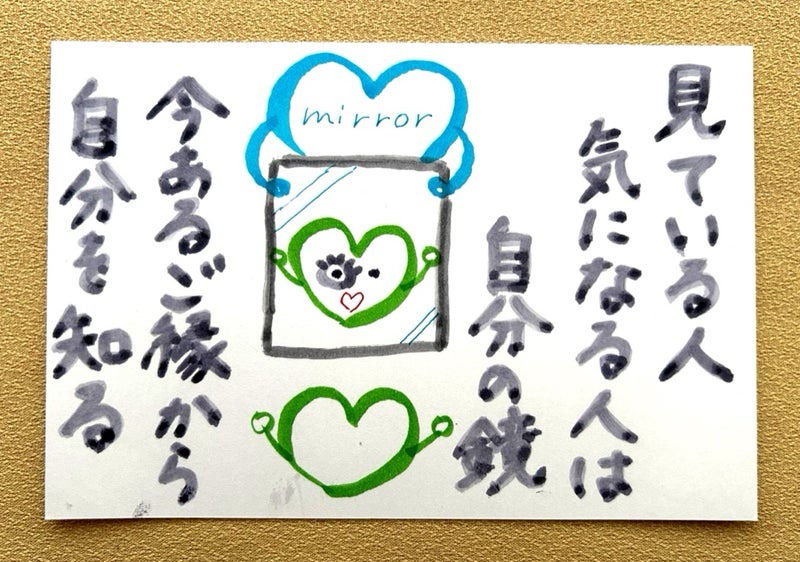 見ている人
気になる人は
自分の鏡
mirror
今あるご縁から
自分を知る